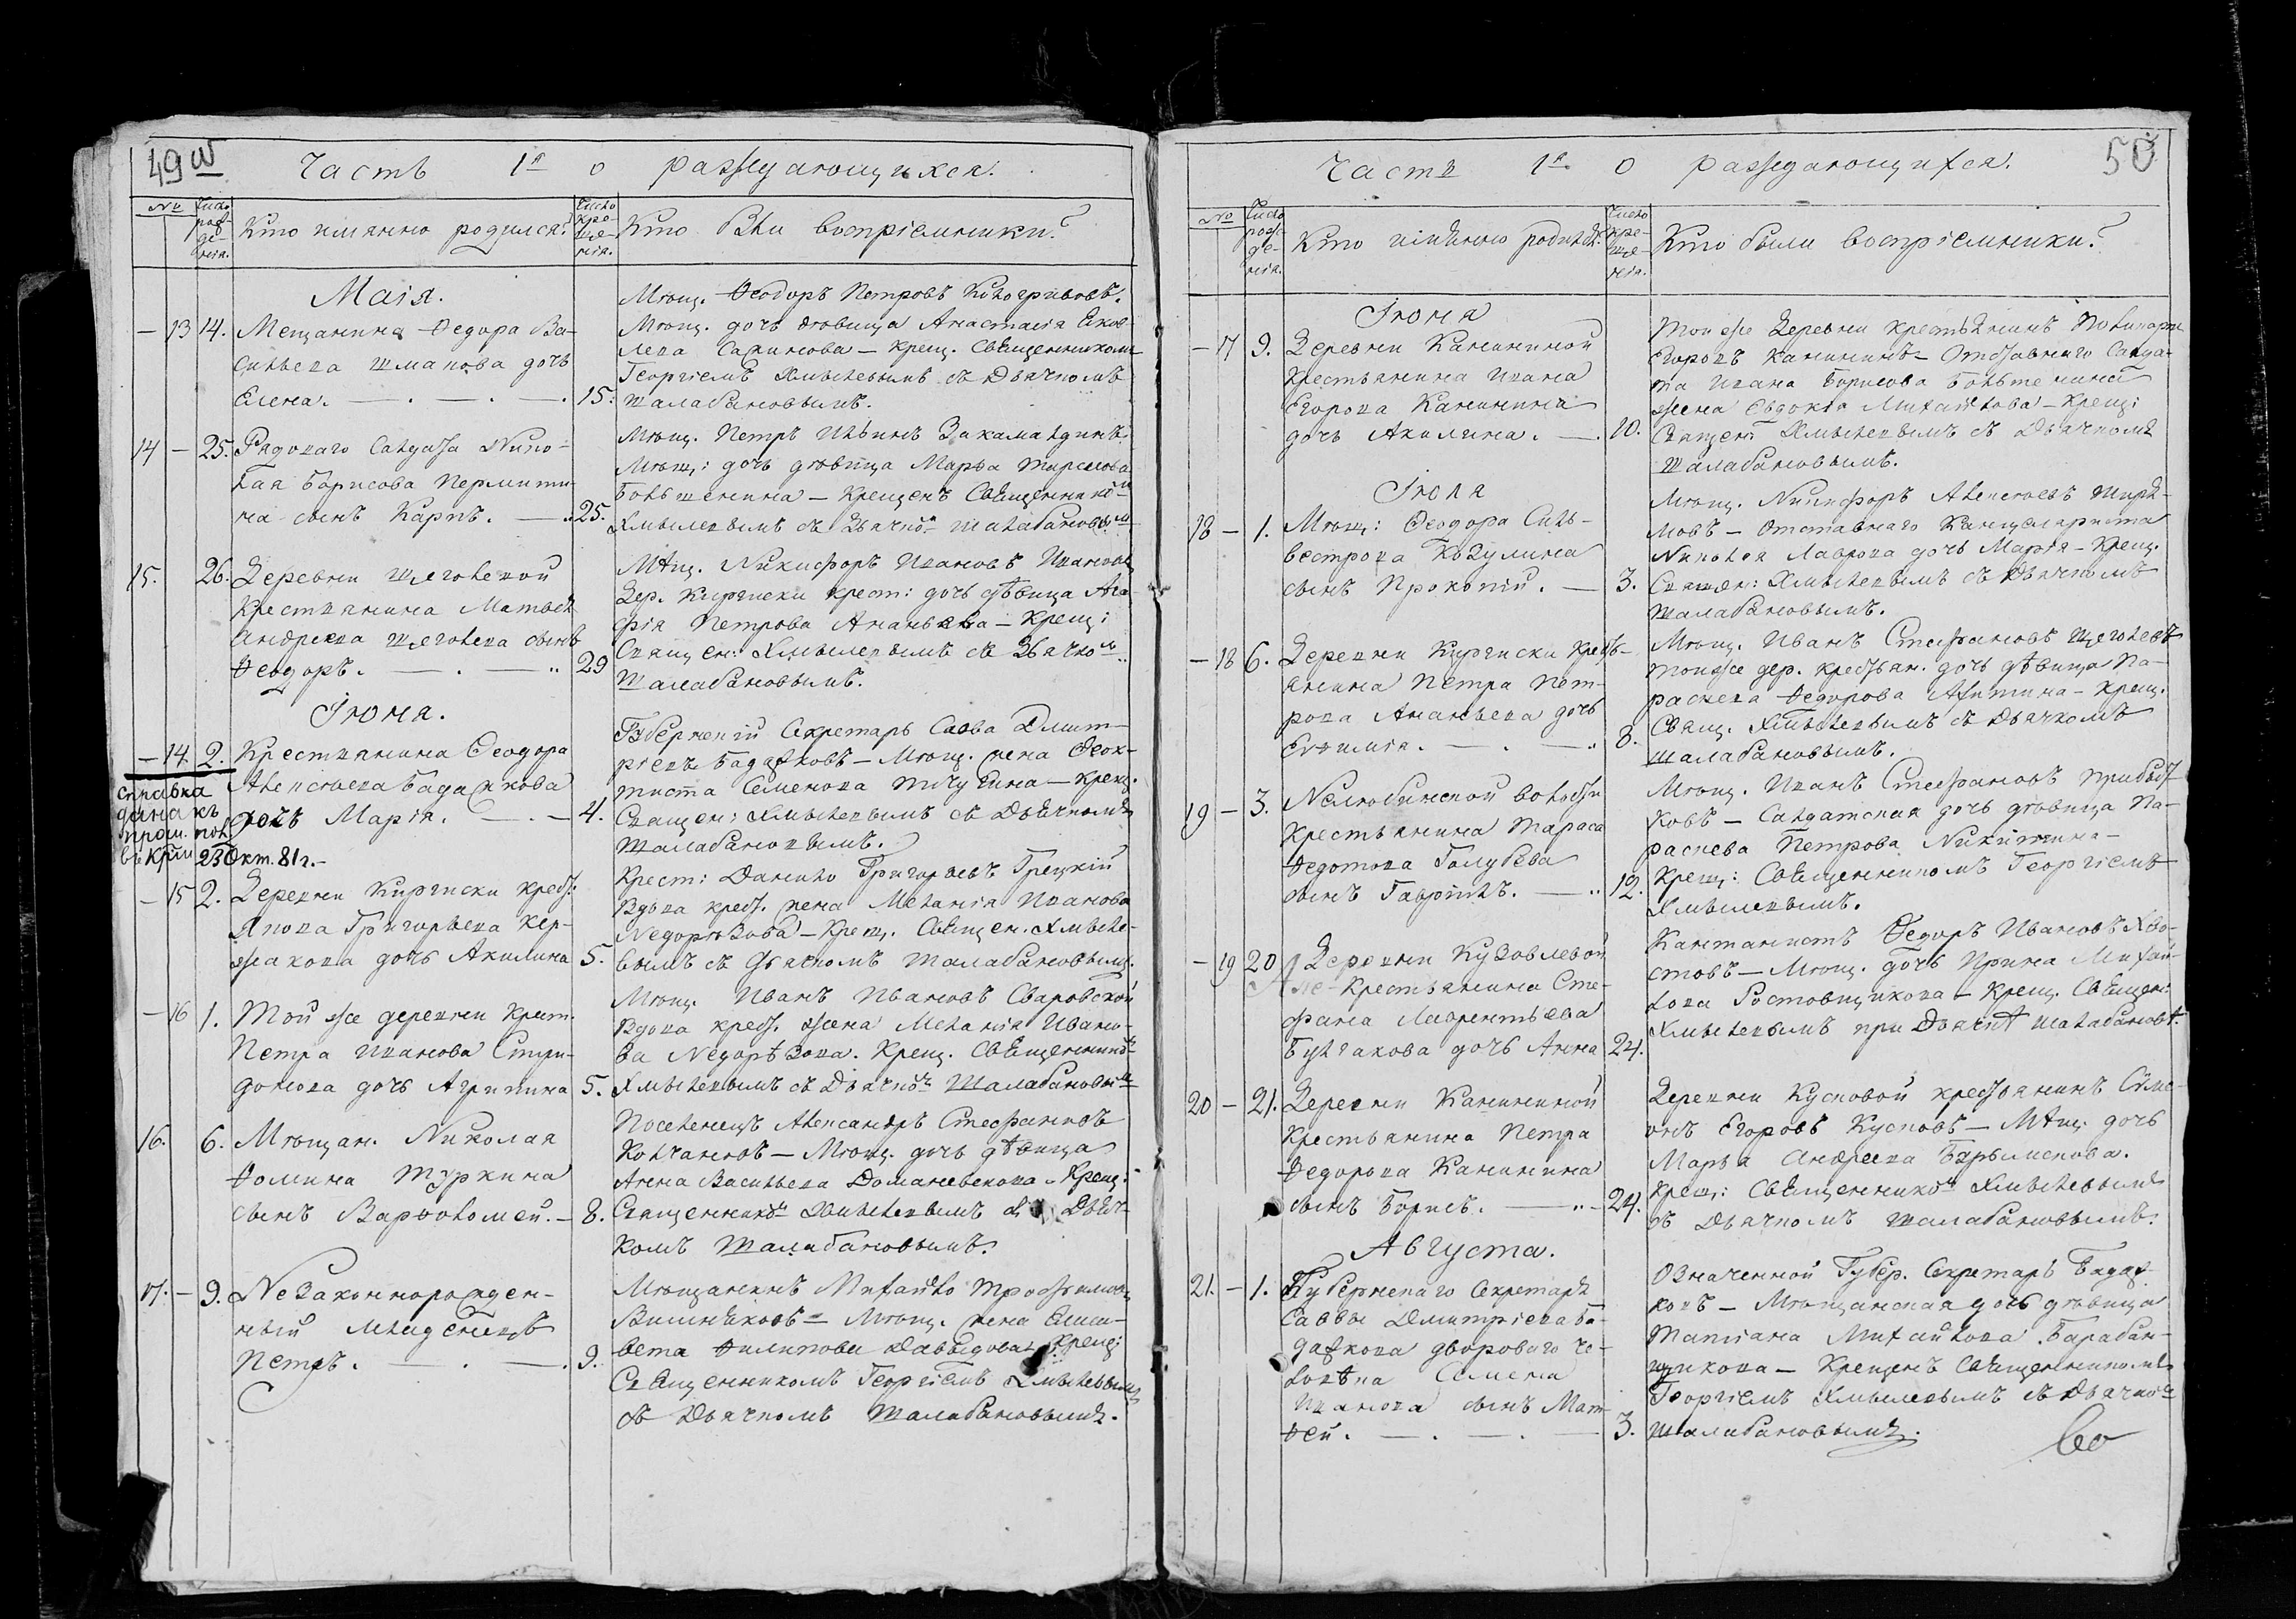 49 об
Часть 1я о раждающихся.
№
Число рождения.
Кто имянно родился?
Число крещения.
Кто были воспріемники?
Маія.
— 13 14. Мещанина Ѳедора Ва-
сильева Шманова дочь
Елена. — . — . — . 15.
Мѣщ. Ѳеодоръ Петровъ Кологривовъ.
Мѣщ. дочь дѣвица Анастасія Яков-
лева — Крещ. Священникомъ
Георгіемъ Хмылевымъ съ Дьячкомъ
Шалабановымъ.
14 — 25. Рядоваго Салдата Нико-
лая Борисова Пермити-
на сынъ Карпъ. — .. 25.
Мѣщ. Петръ Ильинъ Закамалдинъ.
Мѣщ: дочь дѣвица Марья
Большенина — Крещенъ Священником
Хмылевымъ съ Дьячком Шалабановым
15. 26. Деревни Щеголевой
Крестьянина Матвея
Андреева Щеголева сынъ
Ѳеодоръ. — . — .. 29
Мѣщ. Никифоръ Ивановъ Ивановъ
Дер. Киргиски крест: дочь дѣвица Ага-
фія Петрова Ананьева — Крещ:
Священ: Хмылевымъ съ Дьячком
Шалабановымъ.
Іюня.
— 14. 2. Крестьянина Ѳеодора
Алексѣева Бадажкова
дочь Марія. — . — 4.
Губернскій Секретарь Савва Дмит-
ріевъ Бадажковъ — Мѣщ. жена Ѳеок-
тиста Семенова — Крещ.
Священ: Хмылевымъ съ Дьячкомъ
Шалабановымъ.
справка
дана къ
въ
23 Окт. 81 г. —
— 15 2. Деревни Киргиски крест:
Якова Григорьева Кер-
жакова дочь Акилина 5.
Крест: Данило Григорьевъ Грецкій
Вдова крест. жена Меланія Иванова
Недорѣзова — Крещ. Священ. Хмыле-
вымъ съ Дьячкомъ Шалабановымъ.
— 16 1. Той же деревни Крест.
Петра Иванова Спири-
донова дочь Агрипина 5.
Мѣщ. Иванъ Ивановъ Сваровской
Вдова крест. жена Меланія Ивано-
ва Недорѣзова. Крещ. Священником
Хмылевымъ съ Дьячком Шалабановым
16. 6. Мѣщан. Николая
Ѳомина Туркина
сынъ Варѳоломей. — 8.
Поселенецъ Александръ Стефановъ
Колчановъ — Мѣщ. дочь дѣвица
Анна Васильева Доманевскова — Крещ:
Священником Хмылевымъ съ Дьяч-
комъ Шалабановымъ.
17. — 9. Незаконнорожден-
ный младенецъ
Петръ. — . — . 9.
Мѣщанинъ Михайло Трофимовъ
Вишняковъ — Мѣщ. жена Елиса-
вета Филипова Давыдова — Крещ:
Священникомъ Георгіемъ Хмылевымъ
съ Дьячкомъ Шалабановымъ.
50
Часть 1я о раждающихся.
№
Число рождения.
Кто имянно родился?
Число крещения.
Кто были воспріемники?
Іюня
— 17 9. Деревни Канининой
Крестьянина Ивана
Егорова Канинина
дочь Акилина. — . 10.
Тои же Деревни крестьянинъ Поликарпъ
Егоровъ Канининъ — Отставнаго Салда-
та Ивана Борисова Большенина
жена Евдокія Михайлова — Крещ:
Священ: Хмылевымъ съ Дьячкомъ
Шалабановымъ.
Іюля
18 — 1. Мѣщ: Ѳеодора Силь-
вестрова Козулина
сынъ Прокопій. — 3.
Мѣщ. Никифоръ Алексѣевъ Ширя-
мовъ — Отставнаго Канцеляриста
Николая Лаврова дочь Марія — Крещ.
Священ: Хмылевымъ съ Дьячкомъ
Шалабановымъ.
— 18 6. Деревни Киргиски Кресть-
янина Петра Пет-
рова Ананьева дочь
Евѳимія. — . — .. 8.
Мѣщ. Иванъ Стефановъ Щеголевъ
Тоиже дер. крестьян. дочь дѣвица Па-
раскева Ѳедорова — Крещ.
Свящ. Хмылевымъ съ Дьячкомъ
Шалабановымъ.
19 — 3. Нелюбинской волости
Крестьянина Тараса
Ѳедотова Голубева
сынъ Гавріилъ. — .. 12.
Мѣщ. Иванъ Стефановъ Прибыт-
ковъ — Салдатская дочь дѣвица Па-
раскева Петрова Никитина —
Крещ: Священникомъ Георгіемъ
Хмылевымъ.
— 19 20 Деревни Кузовлевой
Крестьянина Сте-
фана Лаврентьева
Булгакова дочь Анна 24.
Кантонистъ Ѳедоръ Ивановъ Хво-
стовъ — Мѣщ. дочь Ирина Михай-
лова Ростовщикова — Крещ. Священ:
Хмылевымъ при Дьячкѣ Шалабановѣ.
20 — 21. Деревни Канининой
Крестьянина Петра
Ѳедорова Канинина
сынъ Борисъ. — .. — 24.
Деревни Кусковой крестьянинъ Симе-
онъ Егоровъ Кусковъ — Мѣщ. дочь
Марья Андреева Барымскова.
Крещ: Священником Хмылевымъ
съ Дьячкомъ Шалабановымъ.
Августа.
21. — 1. Губернскаго Секретаря
Саввы Дмитріева Ба-
дажкова двороваго че-
ловѣка Семена
Иванова сынъ Мат-
ѳей. — . — . — 3.
Означенной Губер. Секретарь Бадаж-
ковъ — Мѣщанская дочь дѣвица
Татіана Михайлова Барабан-
щикова — Крещенъ Священникомъ
Георгіемъ Хмылевымъ съ Дьячком
Шалабановымъ.